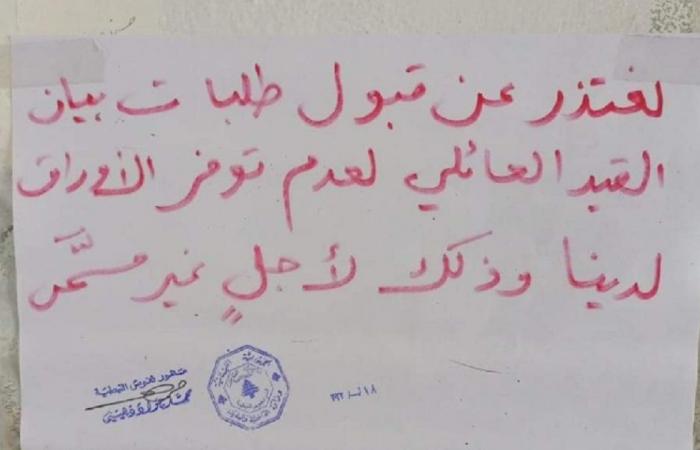 نعتذر عن قبول طلبات بيان
القيد العائلي لعدم توفر الأوراق
لدينا وذلك لأجلٍ غير مسمَّى
مأمور نفوس النبطية